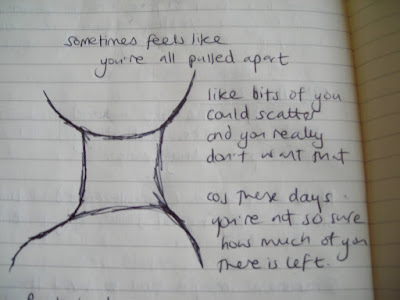 sometimes feels like
you're all pulled apart
like bits of you
could scatter
and you really
don't want that
cos these days
you're not so sure
how much of you
there is left.